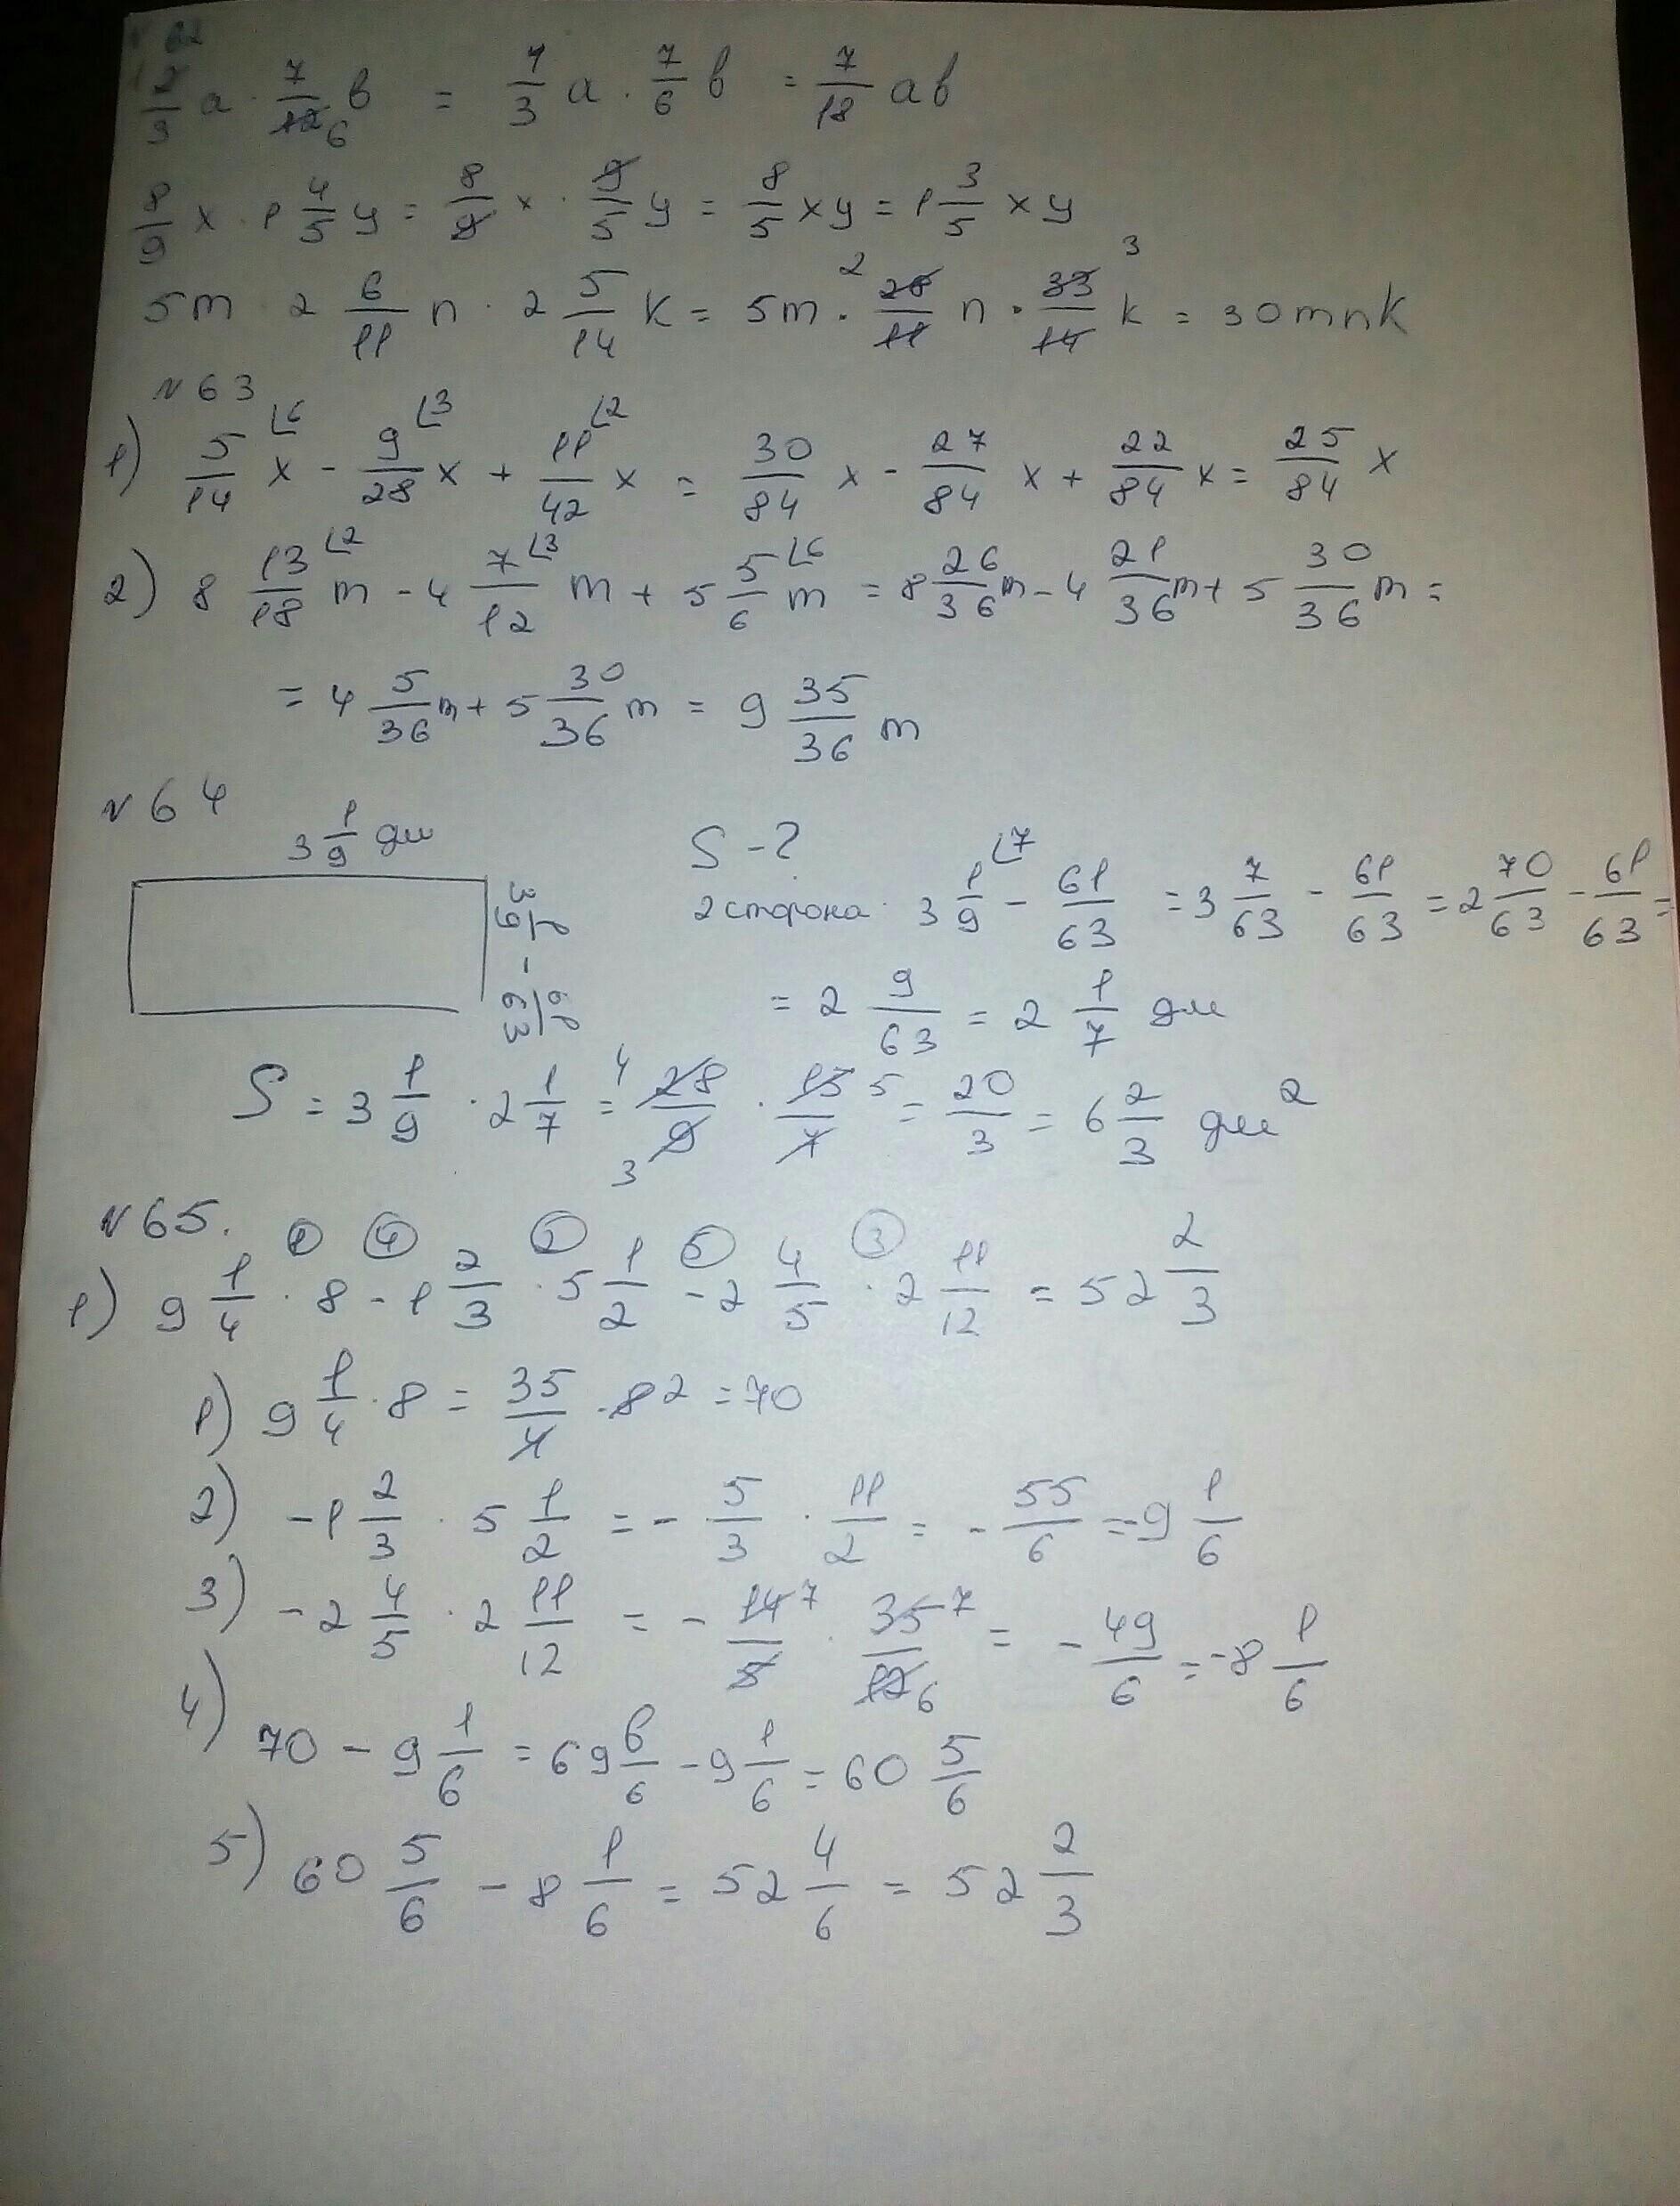 N 62
2/3 a · 7/12 6 b = 1/3 a · 7/6 b = 7/18 ab
8/9 x · 1 4/5 y = 8/9 x · 9/5 y = 8/5 xy = 1 3/5 xy
5m · 2 6/11 n · 2 5/14 k = 5m · 2 28/11 n · 33/14 3 k = 30mnk
N 63
1) 5/14 ∠6 x - 9/28 ∠3 x + 11/42 ∠2 x = 30/84 x - 27/84 x + 22/84 x = 25/84 x
2) 8 13/18 ∠2 m - 4 7/12 ∠3 m + 5 5/6 ∠6 m = 8 26/36 m - 4 21/36 m + 5 30/36 m =
= 4 5/36 m + 5 30/36 m = 9 35/36 m
N 64
3 1/9 дм
3 1/9 - 61/63
S - ?
2 сторона 3 1/9 ∠7 - 61/63 = 3 7/63 - 61/63 = 2 70/63 - 61/63 =
= 2 9/63 = 2 1/7 дм
S = 3 1/9 · 2 1/7 = 4 28/9 3 · 15/7 5 = 20/3 = 6 2/3 дм²
N 65.
① ④ ② ⑤ ③
1) 9 1/4 · 8 - 1 2/3 · 5 1/2 - 2 4/5 · 2 11/12 = 52 2/3
1) 9 1/4 · 8 = 35/4 · 8 2 = 70
2) -1 2/3 · 5 1/2 = - 5/3 · 11/2 = - 55/6 = -9 1/6
3) -2 4/5 · 2 11/12 = - 14/5 7 · 35/12 7 6 = - 49/6 = -8 1/6
4) 70 - 9 1/6 = 69 6/6 - 9 1/6 = 60 5/6
5) 60 5/6 - 8 1/6 = 52 4/6 = 52 2/3